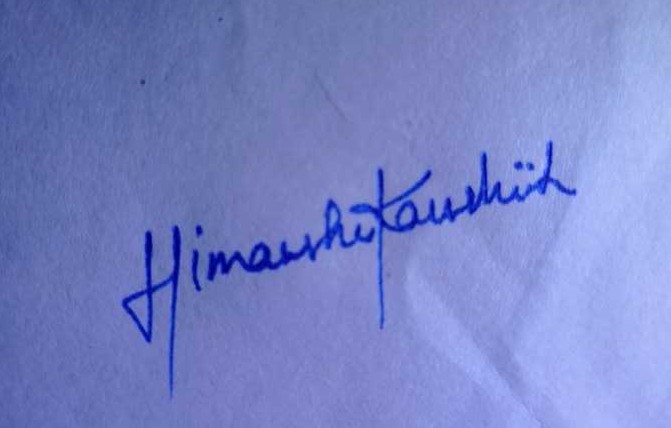 Himanshi Kaushik